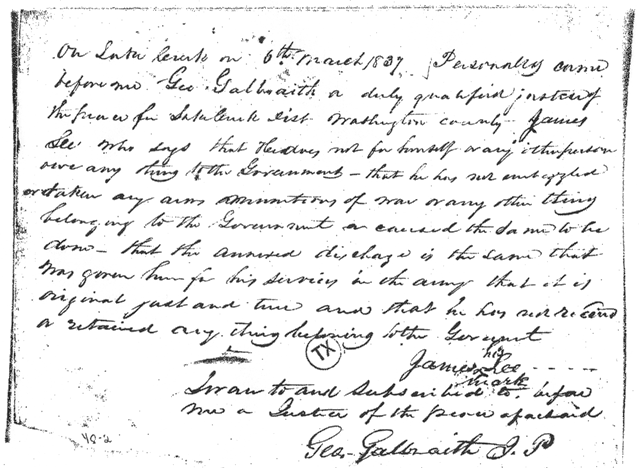 On Lake Creek on 6th March 1837 Personally came
before me Geo Galbraith a duly qualified justice of
the peace for Lake Creek Dist. Washington county James
Lee who says that He does not for himself or any other person
owe any thing to the Government - that he has not embezzled
or taken any arms ammunitions of war or any other thing
belonging to the Government or caused the same to be
done - that the annexed discharge is the same that
was given him for his services in the army that it is
original just and true and that he has not received
or retained any thing belonging to the Goverment
TX
his
James Lee
mark
Swarn to and Subscribed to before
me a Justice of the peace aforesaid
Geo. Galbraith J. P
48-2